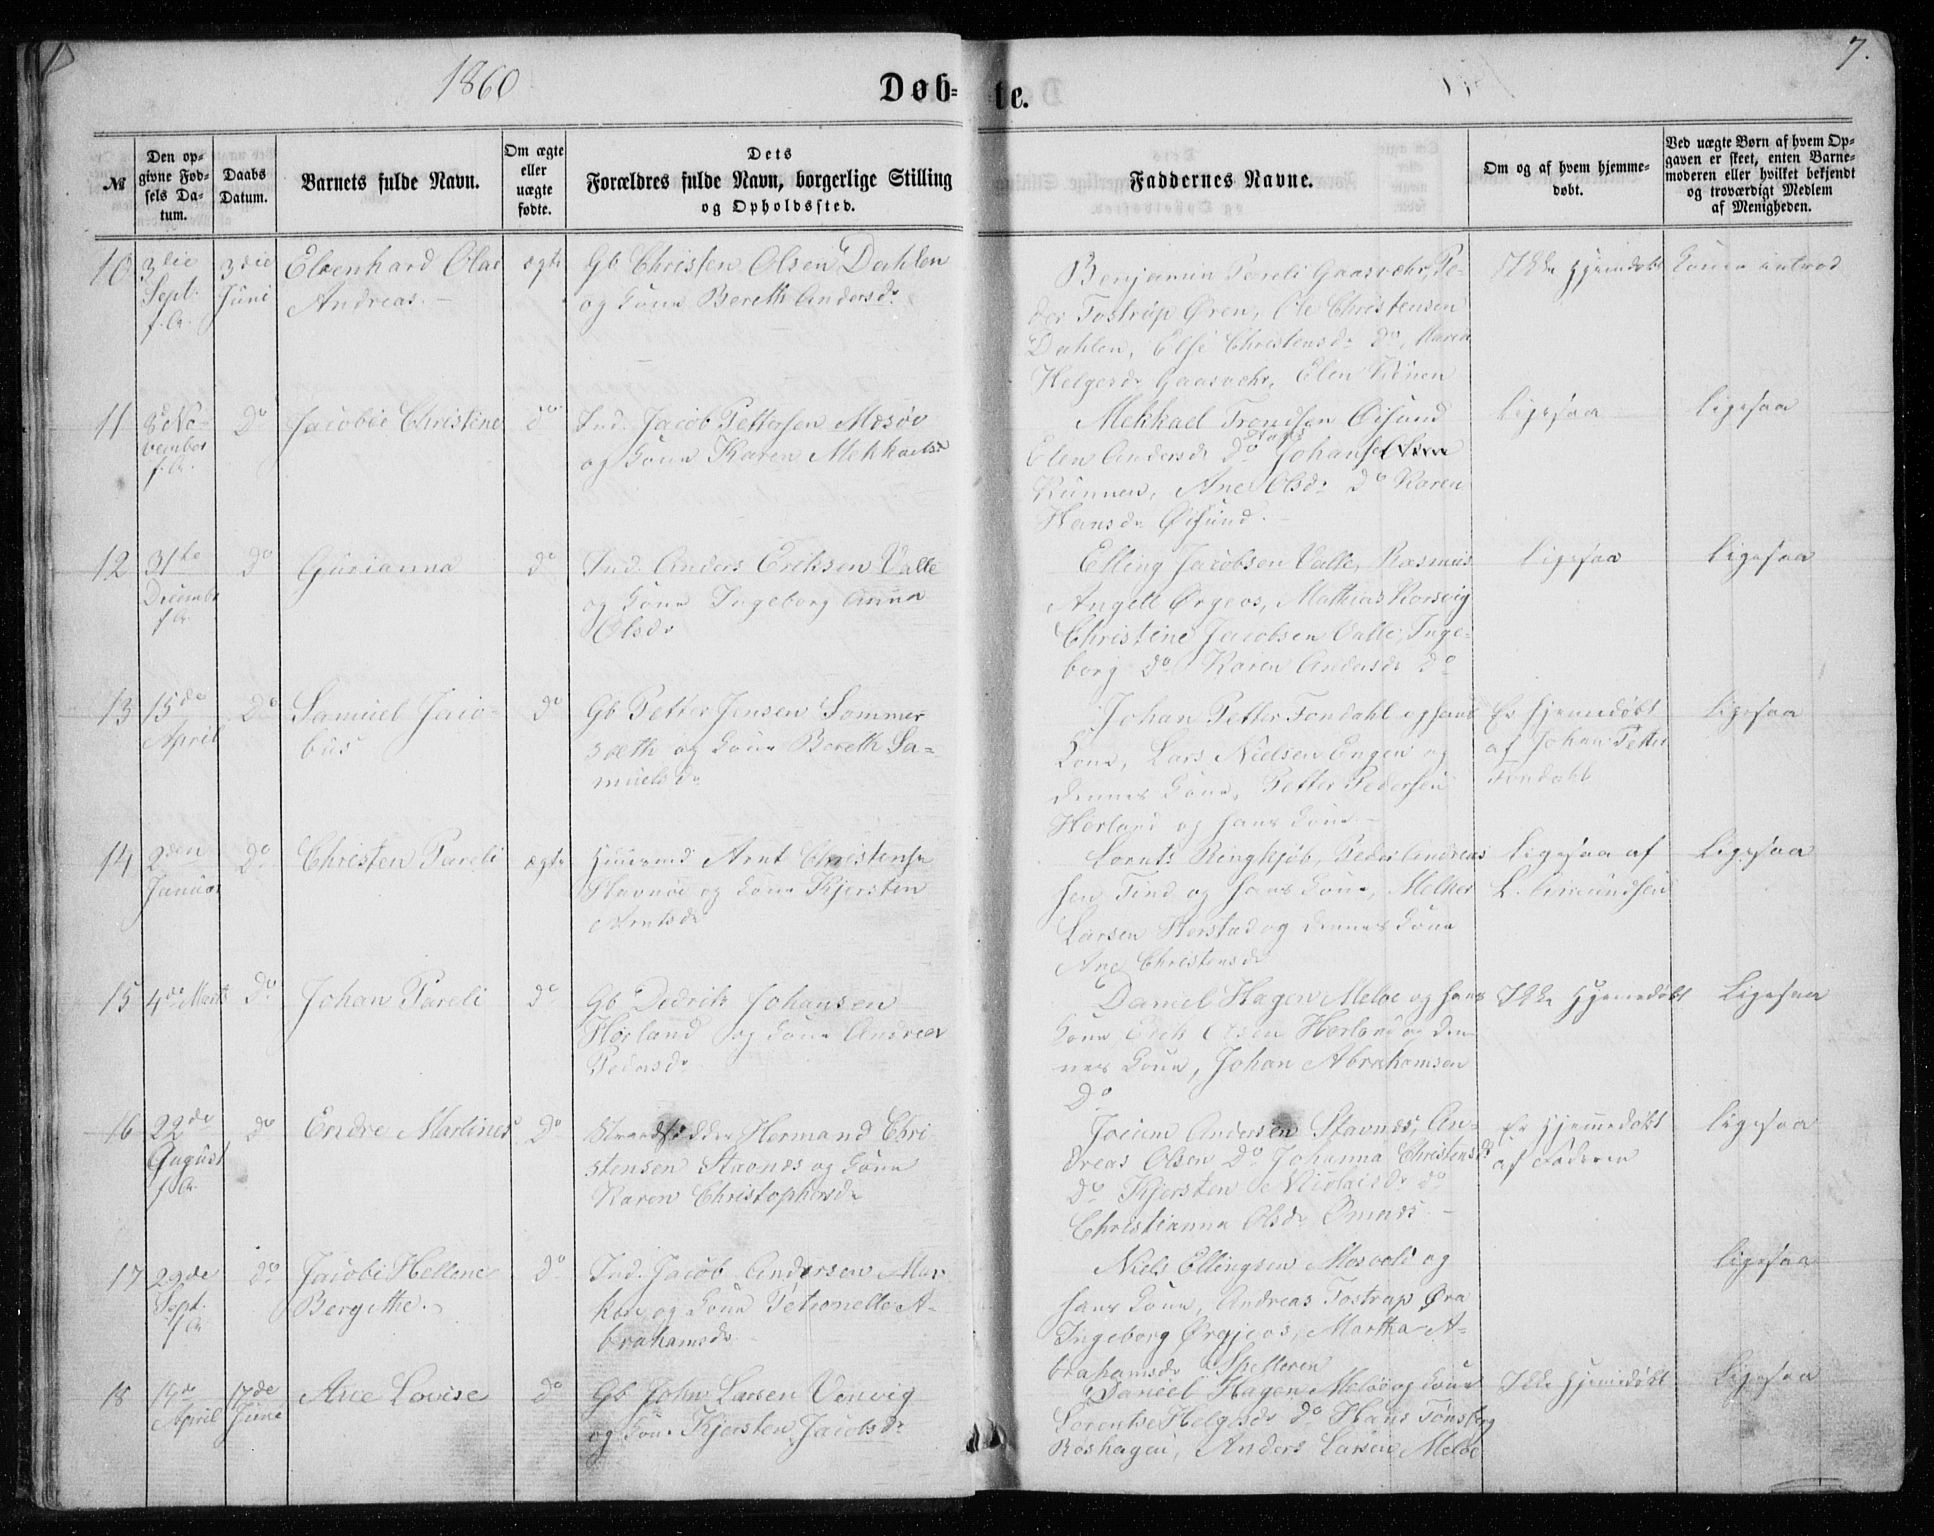 1860
Døb-
te.
7.
№
Den op-
givne Fød-
sels Da-
tum.
Daabs
Datum.
Barnets fulde Navn.
Om ægte
eller
uægte
fødte.
Dets
Forældres fulde Navn, borgerlige Stilling
og Opholdssted.
Faddernes Navne.
Om og af hvem hjemme-
døbt.
Ved uægte Børn af hvem Op-
gaven er skeet, enten Barne-
moderen eller hvilket bekjendt
og troværdigt Medlem
af Menigheden.
10
3die
Sept.
f. A.
3die
Juni
Elenhard Olai
Andreas.
ægte
Gb Christen Olsen Dahlen
og Kone Bereth Andersdr
Benjamin Pareli Gaasvær, Pe-
der Fostrup Øren, Ole Christensen
Dahlen, Else Christensdr Do, Maren
Helgesdr Gaasvær, Elen
Ikke hjemdøbt
Konen introd
11
8de No-
vember
f. A.
Do
Jacobie Christine
do
Ind. Jacob Pettersen Mesøe
og Kone Karen Mekkaelsdr
Mekkael Trondsen Øisund
Elen Andersdr Do Johanse
Kunnen, Ane Olsdr Do Karen
Hansdr Øisund.
Ligesaa
Ligesaa
12
31te
December
f. A.
Do
Gurianna
do
Ind. Anders Eriksen Valle
og Kone Ingeborg Anna
Olsdr
Elling Jacobsen Valle, Rasmus
Angell Ørgeos, Mathias Korsvig
Christine Jacobsen Valle, Inge-
borg Do Karen Andersdr Do
Ligesaa
Ligesaa
13
15de
April
Do
Samuel Jaco-
bus
do
Gb Petter Jensen Sommer
sæth og Kone Bereth Sa-
muelsdr
Johan Petter Fondahl og hans
Kone, Lars Nielsen Engen og
dennes Kone, Petter Pedersen
Horland og hans Kone
Er hjemmedøbt
af Johan Petter
Fondahl
Ligesaa
14
2den
Januar
Do
Christen Pareli
ægte
Huusmd Arnt Christensen
Stavnæs og Kone Kjersten
Arntsdr
Lornts Ringkjøb, Peder Andreas
sen Find og hans Kone, Melker
Larsen Horstad og dennes Kone
Ane Christensdr
Ligesaa af
L. Amundsen
Ligesaa
15
4de Marts
Do
Johan Pareli
do
Gb Dedrik Johansen
Horland og Kone Andrea
Pedersdr
Daniel Hagen Meløe og hans
Kone Erik Olsen Horland og den-
nes Kone, Johan Abrahamsen
Do
Ikke Hjemmedøbt
Ligesaa
16
22de
August
f. A.
do
Endre Martines
Do
Strandsidder Hermand Chri
stensen Stavnes og Kone
Karen Christophersdr
Jocum Andersen Stavnes, An-
dreas Olsen Do Johanna Christensdr
Do Kjersten Nicolaisdr do
Christianna Olsdr Ømnes.
Er hjemmedøbt
af Faderen
Ligesaa
17
29de
Sept.
f. A.
do
Jacobe Hellene
Bergitte.
do
Ind. Jacob Andersen Mar
og Kone Petronelle A-
brahamsdr
Niels Ellingsen Mosvold og
hans Kone, Andreas Fostrap Øra
Ingeborg Ørgjeos, Martha A-
brahamsdr Spilderen
Ligesaa
18
April
17de
June
Ane Lovise
do
Gb John Larsen Venvig
og Kone Kjersten Jacobsdr
Daniel Hagen Meløe og Kone
Lorentse Helgesdr Do Hans Tønsberg
Roshagen, Anders Larsen Meløe
Ikke hjemdøbt
Ligesaa